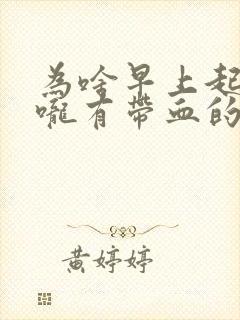 為啥早上起
嚨有帶血的
黃婷婷